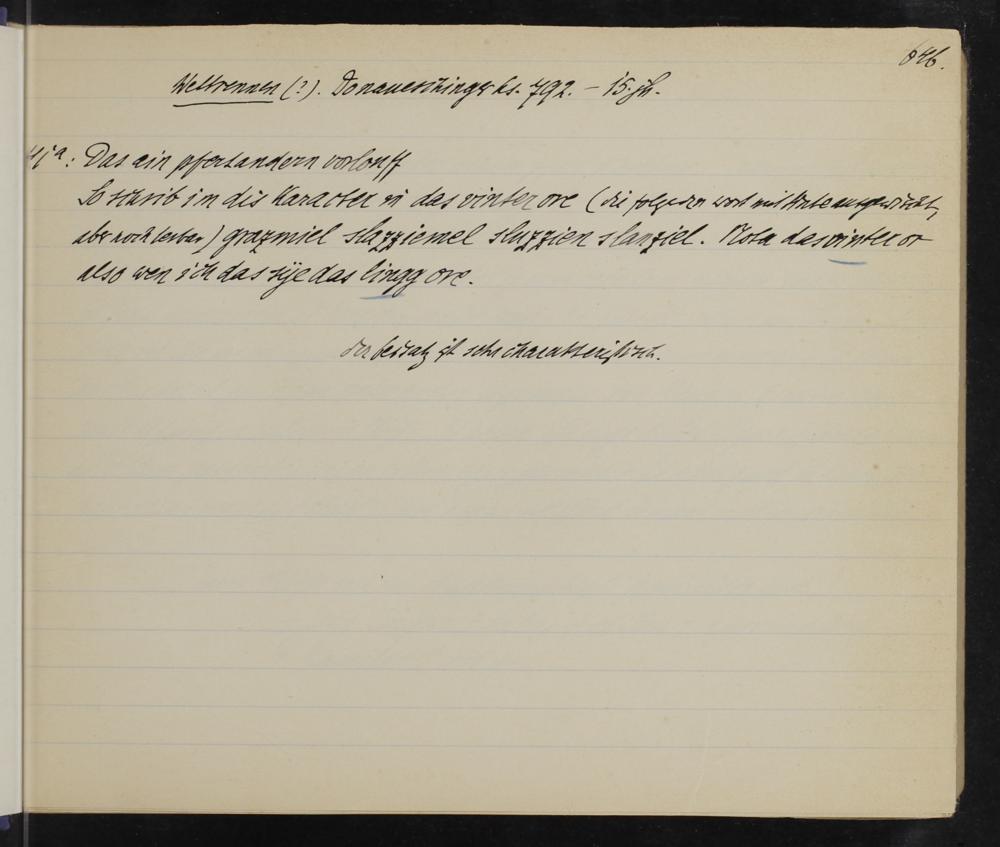 646.
Wettrennen (?). Donaueschinger hs. 792. – 15. jh.
Das ein pfert andern vorlouff
So schrib im dis Karacter in das vinster ore (die folgenden wort mit tinte ausgewischt,
aber noch lesbar) grazmiel slazziemel sluzzien slanziel. Nota das vinster or
also wen ich das sije das lingg ore.
der beisatz ist sehr charakteristisch.